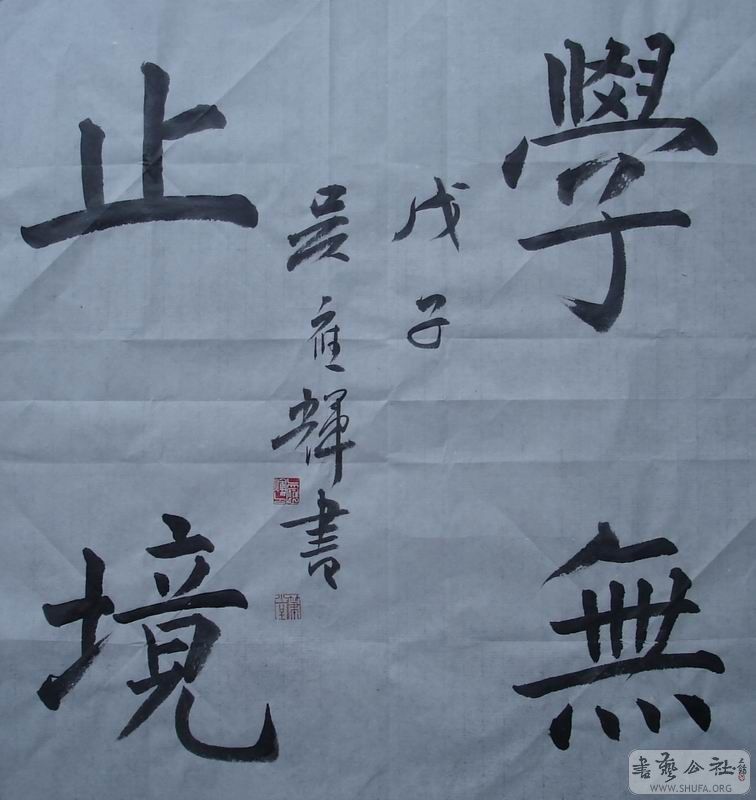 學無
止境
戊子
吴應輝書
書藝公社
WWW.SHUFA.ORG